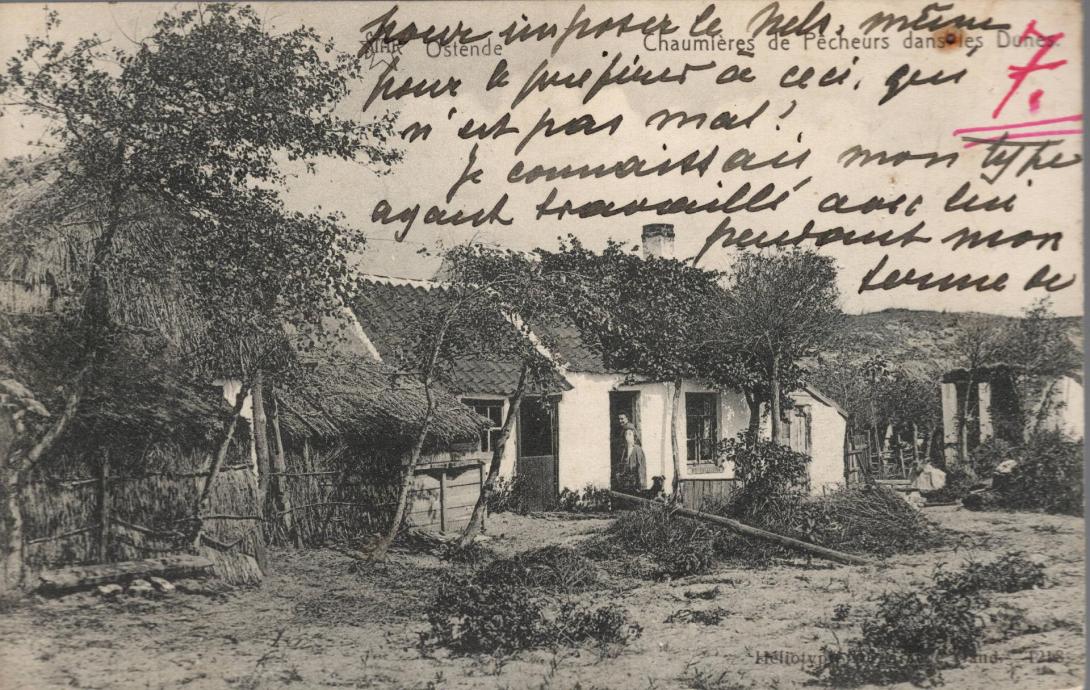 pour imposer le Nels, même
Ostende
Chaumières de Pêcheurs dans les Dunes.
7.
pour le préférer à ceci, qui
n'est pas mal!
Je connaissais mon type
ayant travaillé avec lui
pendant mon
terme de
Héliotypie 1218